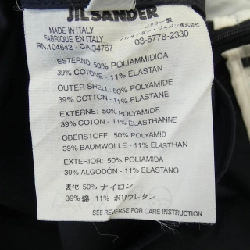 JIL SANDER
MADE IN ITALY
FABRIQUE EN ITALY
RN.104842 - CA04757
03-5778-2330
ESTERNO 50% POLIAMMIDICA
39% COTONE - 11% ELASTAN
OUTER SHELL: 50% POLYAMID
39% COTTON - 11% ELASTANE
EXTERNE: 50% POLYAMIDE
39% COTON - 11% ELASTHANE
OBERSTOFF: 50% POLYAMID
39% BAUMWOLLE - 11% ELASTHAN
EXTERIOR: 50% POLIAMIDA
39% ALGODON - 11% ELASTANO
表地 50% ナイロン
39% 綿 11% ポリウレタン
SEE REVERSE FOR CARE INSTRUCTION